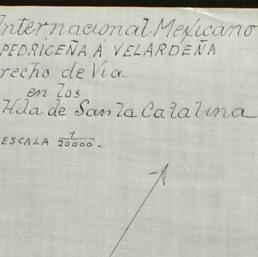 Internacional Mexicano
PEDRICEÑA A VELARDEÑA
recho de Via
en los
Hda de Santa Catalina
ESCALA 1/20000.